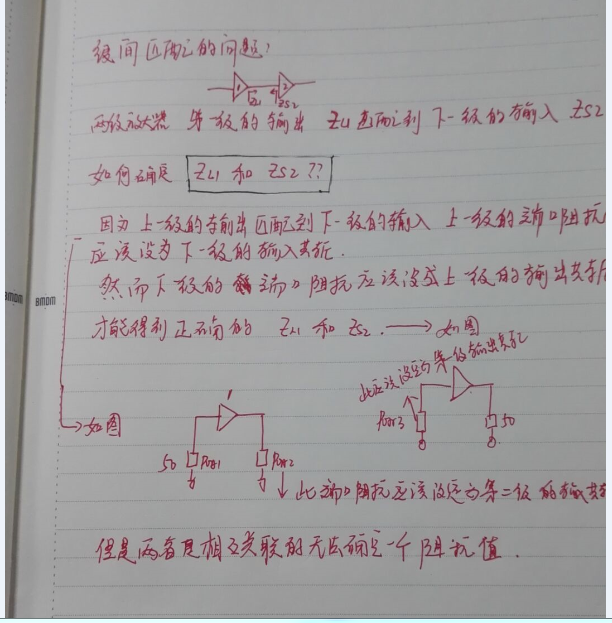 级间匹配的问题:
1 2
ZL1 ZS2
两级放大器 第一级的输出 ZL1 匹配到 下一级的输入 ZS2
如何确定 ZL1 和 ZS2 ??
因为上一级的输出匹配到下一级的输入 上一级的端口阻抗
应该设为下一级的输入共轭.
然而下级的 端口阻抗应该设成上一级的输出共轭
才能得到正确的 ZL1 和 ZS2. → 如图
此应该设定为第一级输出共轭
→ 如图
1
50 Port1 Port2
Port3 50
此端口阻抗应该设定为第二级的输入共轭
但是两者是相互关联的无法确定一个阻抗值.
BMDM